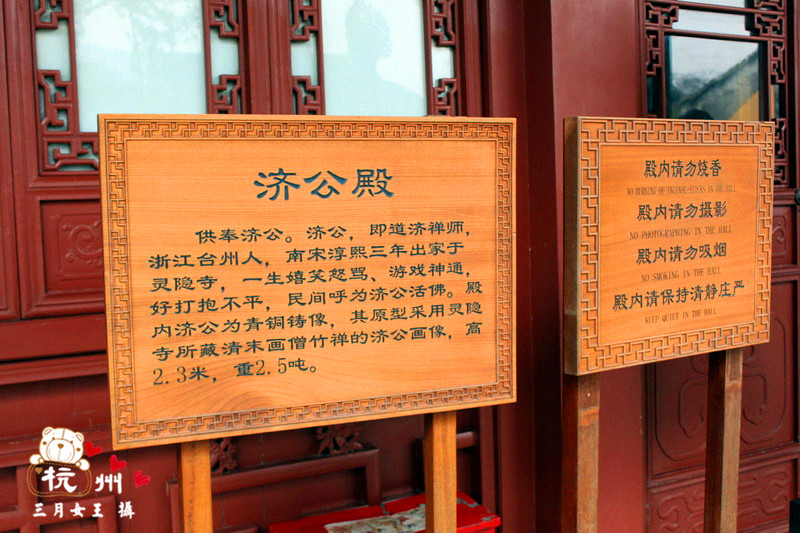 济公殿
供奉济公。济公，即道济禅师，
浙江台州人，南宋淳熙三年出家于
灵隐寺，一生嬉笑怒骂、游戏神通，
好打抱不平，民间呼为济公活佛。殿
内济公为青铜铸像，其原型采用灵隐
寺所藏清末画僧竹禅的济公画像，高
2.3米，重2.5吨。
殿内请勿烧香
NO BURNING OF INCENSE-STICKS IN THE HALL
殿内请勿摄影
NO-PHOTOGRAPHING IN THE HALL
殿内请勿吸烟
NO SMOKING IN THE HALL
殿内请保持清静庄严
KEEP QUIET IN THE HALL
杭州
三月女王 摄